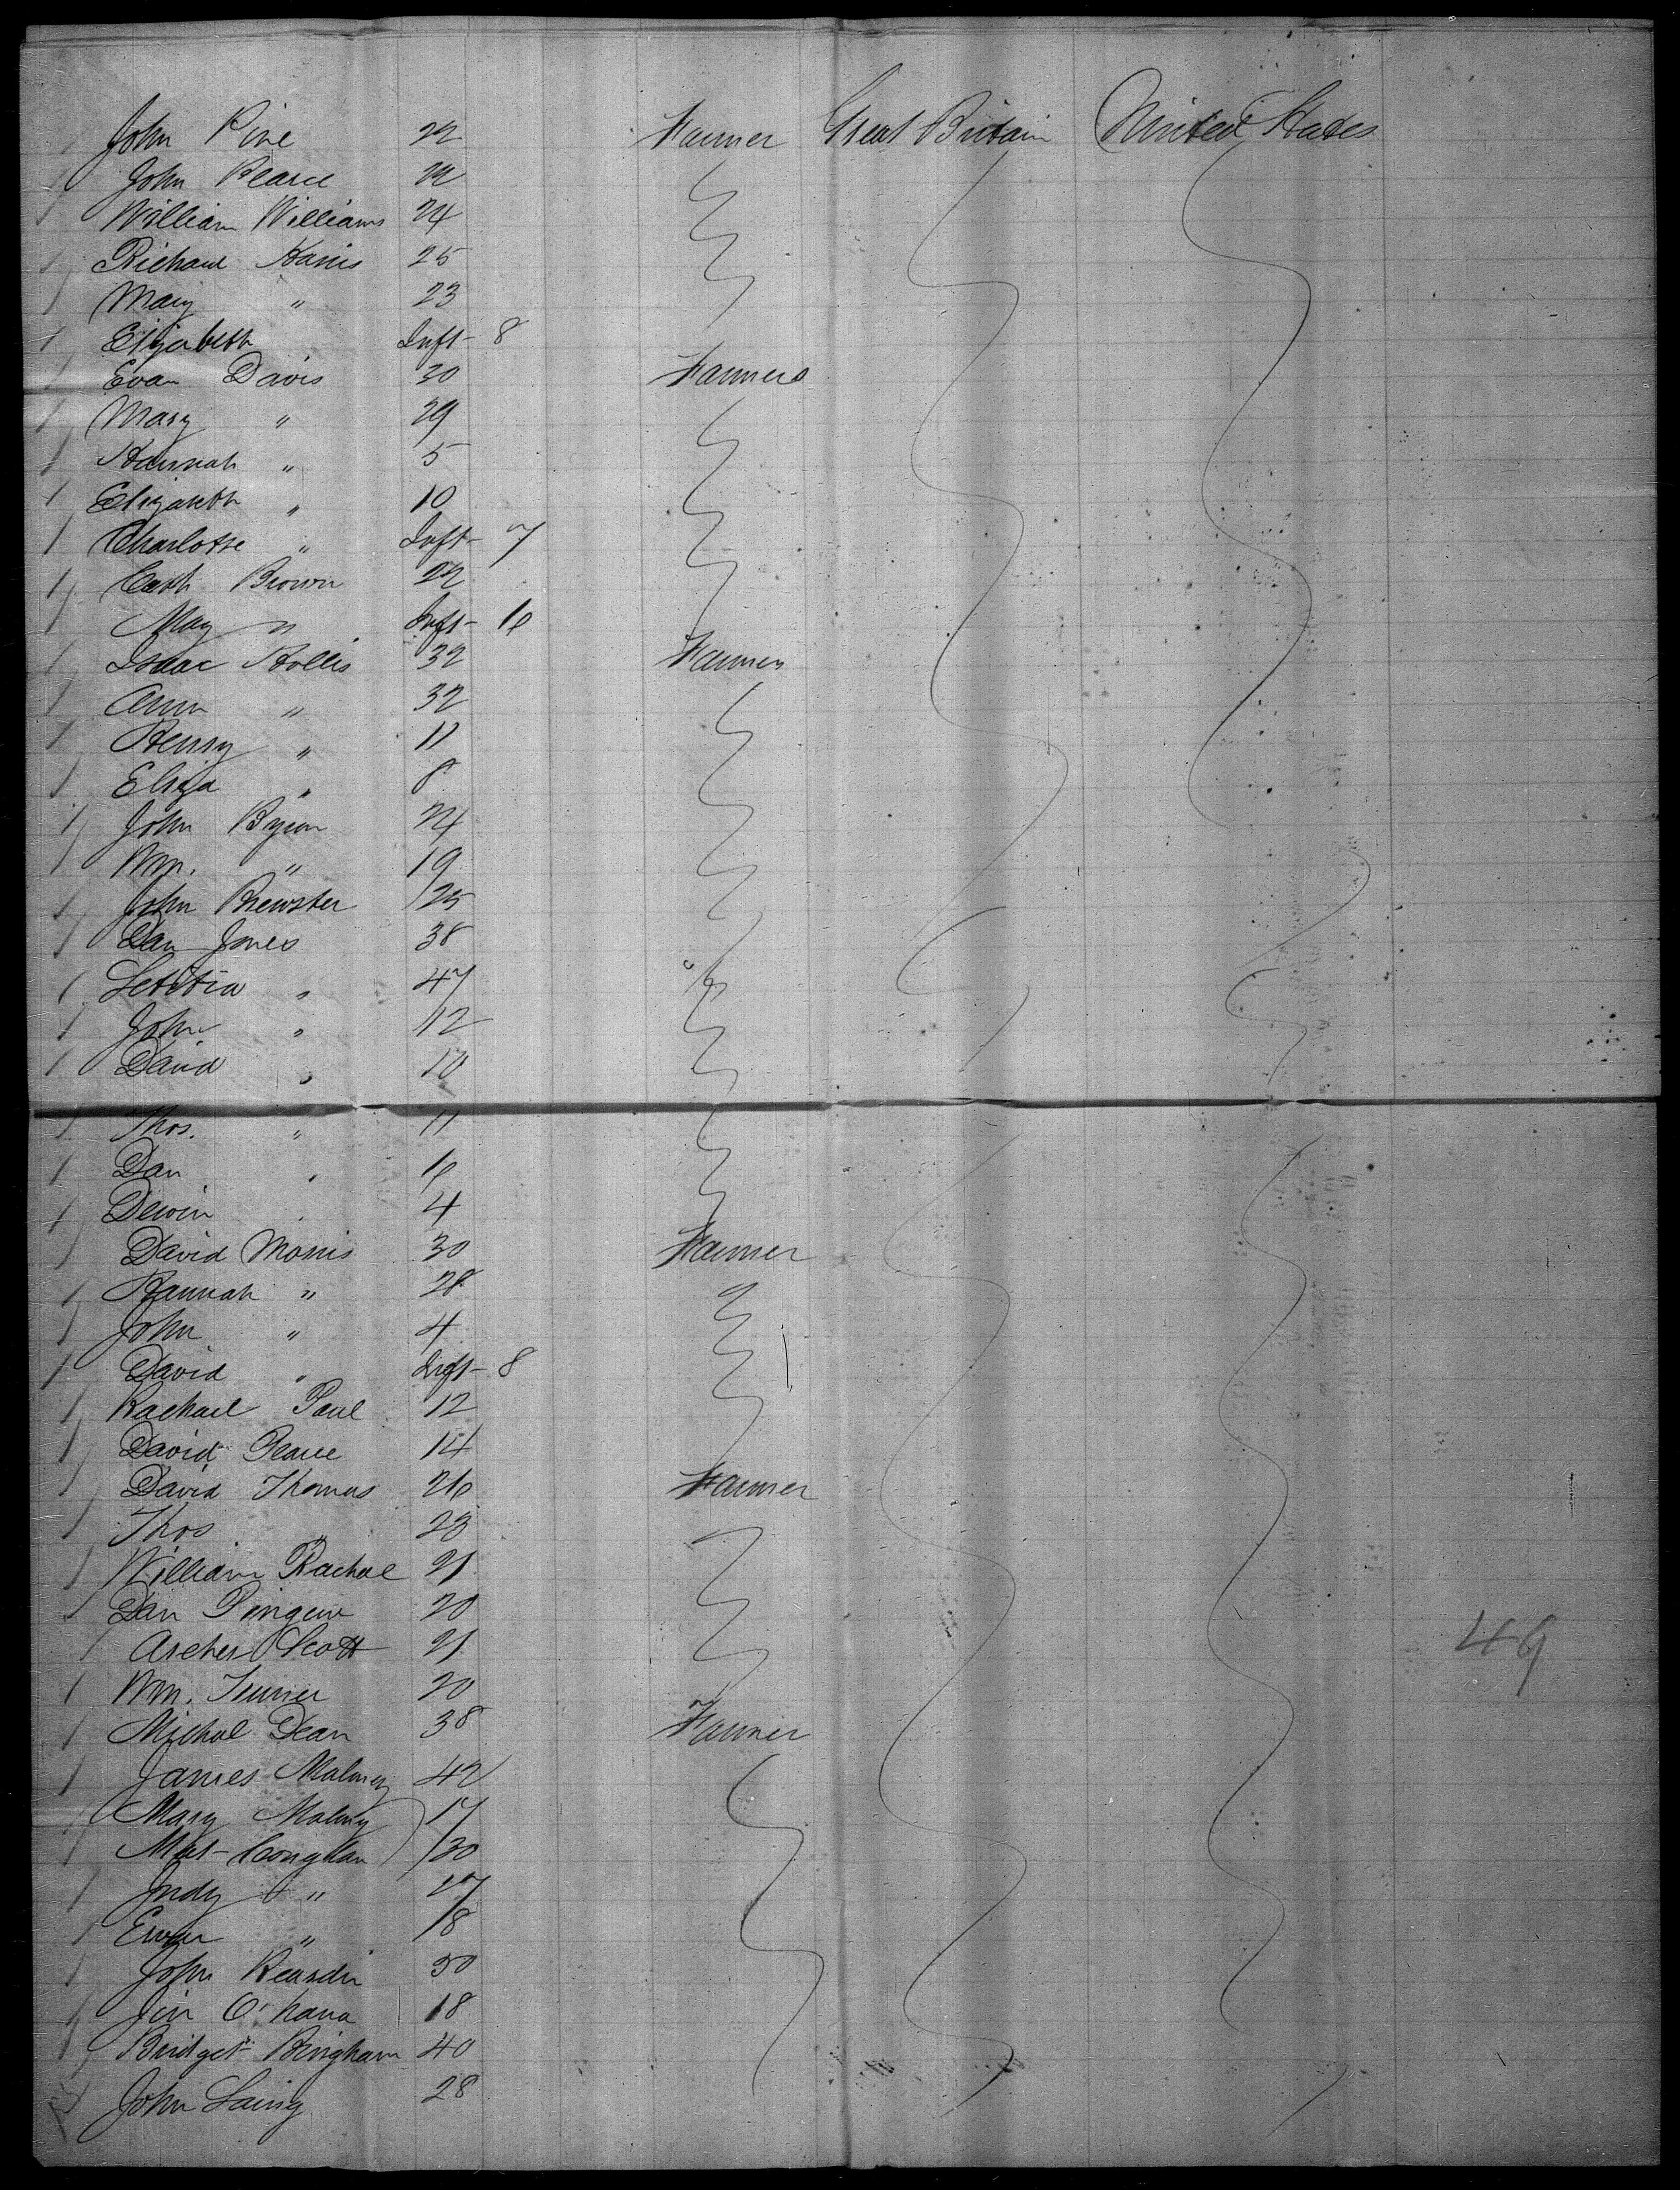 John Pine 22 Farmer Great Britain United States
John Pearce 22
William Williams 24
Richard Harris 25
Mary " 23
Elizabeth Inft- 8
Evan Davis 30 Farmers
Mary " 29
Hannah " 5
Elizabeth " 10
Charlotte " Inft- 7
Cath Brown 22
May " Inft- 16
Isaac Hollis 32 Farmer
Ann " 32
Henry " 11
Eliza " 8
John Byron 24
Wm. " 19
John Brewster 25
Dan Jones 38
Letitia " 47
John " 12
David " 10
Thos. " 11
Dan " 6
4
David Morris 30 Farmer
Hannah " 28
John " 4
David " Inft- 8
Rachael Paul 12
David Pearce 14
David Thomas 26 Farmer
Thos " 23
William Rachael 21
Dan 20
Archer Scott 21
Wm. Turner 20
Michal Dean 38 Farmer
James Malmey 42
Mary Malmy 17
Mat- Conghlan 30
Judy " 27
" 18
John Reardin 30
Jim O'hara 18
Bridget Bingham 40
John Laing 28
49